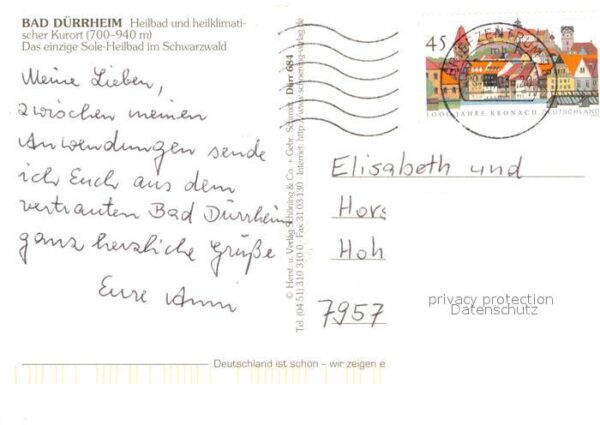 BAD DÜRRHEIM Heilbad und heilklimati-
scher Kurort (700–940 m)
Das einzige Sole-Heilbad im Schwarzwald
Meine Lieben,
zwischen meinen
Anwendungen sende
ich Euch aus dem
vertrauten Bad Dürrheim
ganz herzliche Grüße
Eure Anni
© Herst. u. Verlag Schöning & Co. + Gebr. Schmidt
Tel. (04 51) 310 310-0 · Fax 31 03 130 · Internet: http://www.schoening-verlag.de
Dürr 684
45
BRIEFZENTRUM
1000 JAHRE KRONACH DEUTSCHLAND
Elisabeth und
Hors
Hoh
7957
privacy protection
Datenschutz
Deutschland ist schön – wir zeigen e